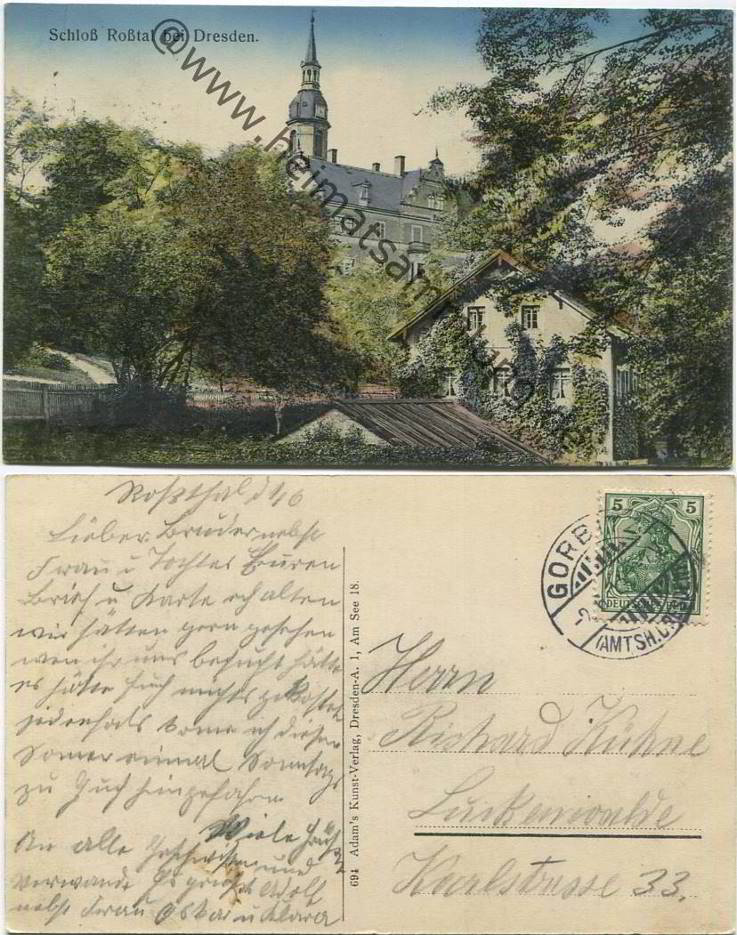 Schloß Roßtal bei Dresden.
@www.heimatsammlung.de
Roßthal d 1/6
Lieber Bruder nebst
Frau u Tochter Euren
Brief u Karte erhalten
wir hätten gern gesehen
wen ihr uns besucht hätte
es hätte Euch nichts gekostet
jedenfals kome ich diesen
Somer einmal Sonntags
zu Euch hingefahrn
Viele Grüße
An alle Geschwister und
Verwande Es grüßt Adolf
nebst Frau Oskar u Klara
694 Adam's Kunst-Verlag, Dresden-A. 1, Am See 18.
5 5
DEUTSCHES REICH
GORB
(AMTSH.
Herrn
Richard Kühne
Luckenwalde
Karlstrasse 33.